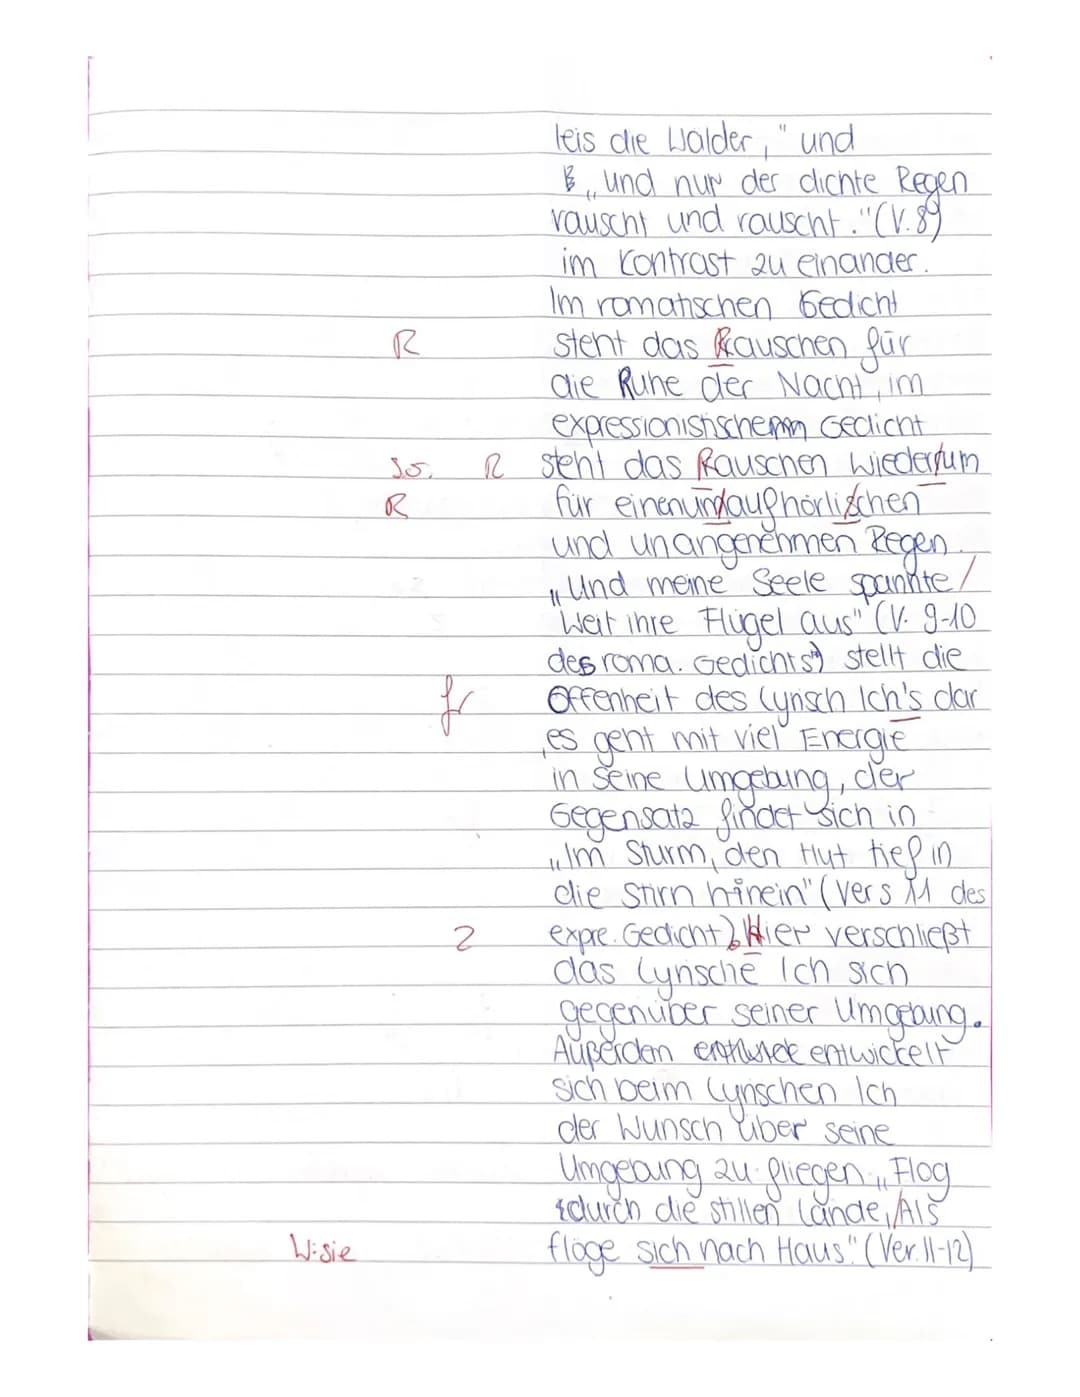 leis die Wälder," und
„und nur der dichte Regen
rauscht und rauscht."(V.89)
im Kontrast zu einander.
Im romatischen Gedicht
R steht das Rauschen für
die Ruhe der Nacht, im
expressionistischem Gedicht
so. R steht das Rauschen wiederrum
R für einenundaufhörlischen
und unangenehmen Regen.
„Und meine Seele spannte/
Weit ihre Flügel aus" (V. 9-10
des roma. Gedichts) stellt die
fr Offenheit des Lyrisch Ich's dar
,es geht mit viel Energie
in seine Umgebung, der
Gegensatz findet sich in
„Im Sturm, den Hut tief in
die Stirn hinein" (Vers 11 des
Z expre. Gedicht). Hier verschließt
das Lyrische Ich sich
gegenüber seiner Umgebung.
Außerdem entwickelt
sich beim Lyrischen Ich
der Wunsch über seine
Umgebung zu fliegen „Flog
durch die stillen Lande,/Als
W:sie flöge sich nach Haus." (Ver.11-12)